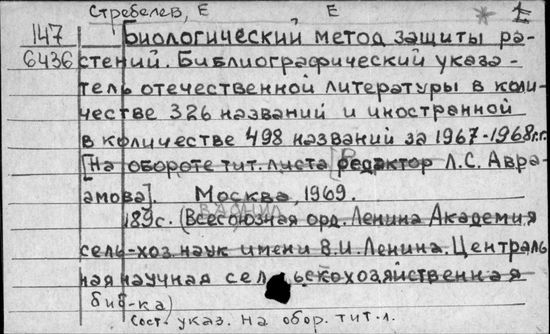 Стребелев, Е Е
147 Биологический метод защиты ра-
6436 стений. Библиографический указа-
тель отечественной литературы в коли-
честве 326 названий и иностранной
в количестве 498 названий за 1967-1968 г.г.
[На обороте тит. листа редактор Л.С. Авра-
амова]. Москва, 1969.
189с. (Всесоюзная орд. Ленина Академия
сель-хоз. наук имени В.И. Ленина. Централь
ная научная сельскохозяйственная
биб-ка)
Сост. указ. на обор. тит. л.